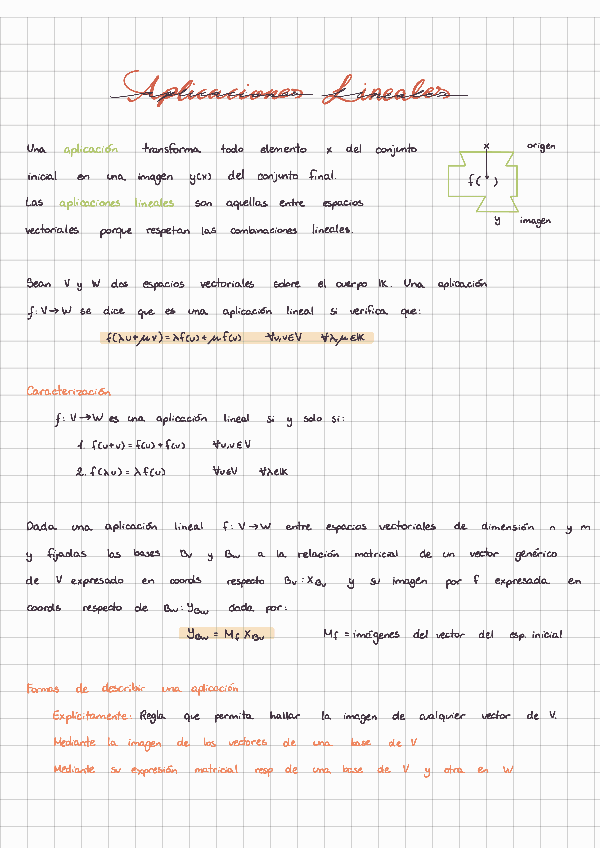 Aplicaciones Lineales
Una aplicación transforma todo elemento x del conjunto
inicial en una imagen y(x) del conjunto final.
Las aplicaciones lineales son aquellas entre espacios
vectoriales porque respetan las combinaciones lineales.
x origen
f( )
y imagen
Sean V y W dos espacios vectoriales sobre el cuerpo IK. Una aplicación
f: V→W se dice que es una aplicación lineal si verifica que:
f(λu+μv) = λf(u)+μf(v) ∀u,v∈V ∀λ,μ∈IK
Caracterización
f: V→W es una aplicación lineal si y solo si:
1. f(u+v) = f(u) + f(v) ∀u,v∈V
2. f(λu) = λf(u) ∀u∈V ∀λ∈IK
Dada una aplicación lineal f: V→W entre espacios vectoriales de dimensión n y m
y fijadas las bases Bv y Bw a la relación matricial de un vector genérico
de V expresado en coords respecto Bv: XBv y su imagen por f expresada en
coords respecto de Bw: YBw dada por:
YBw = Mf XBv Mf = imágenes del vector del esp. inicial
Formas de describir una aplicación
Explícitamente: Regla que permita hallar la imagen de cualquier vector de V.
Mediante la imagen de los vectores de una base de V
Mediante su expresión matricial resp de una base de V y otra en W